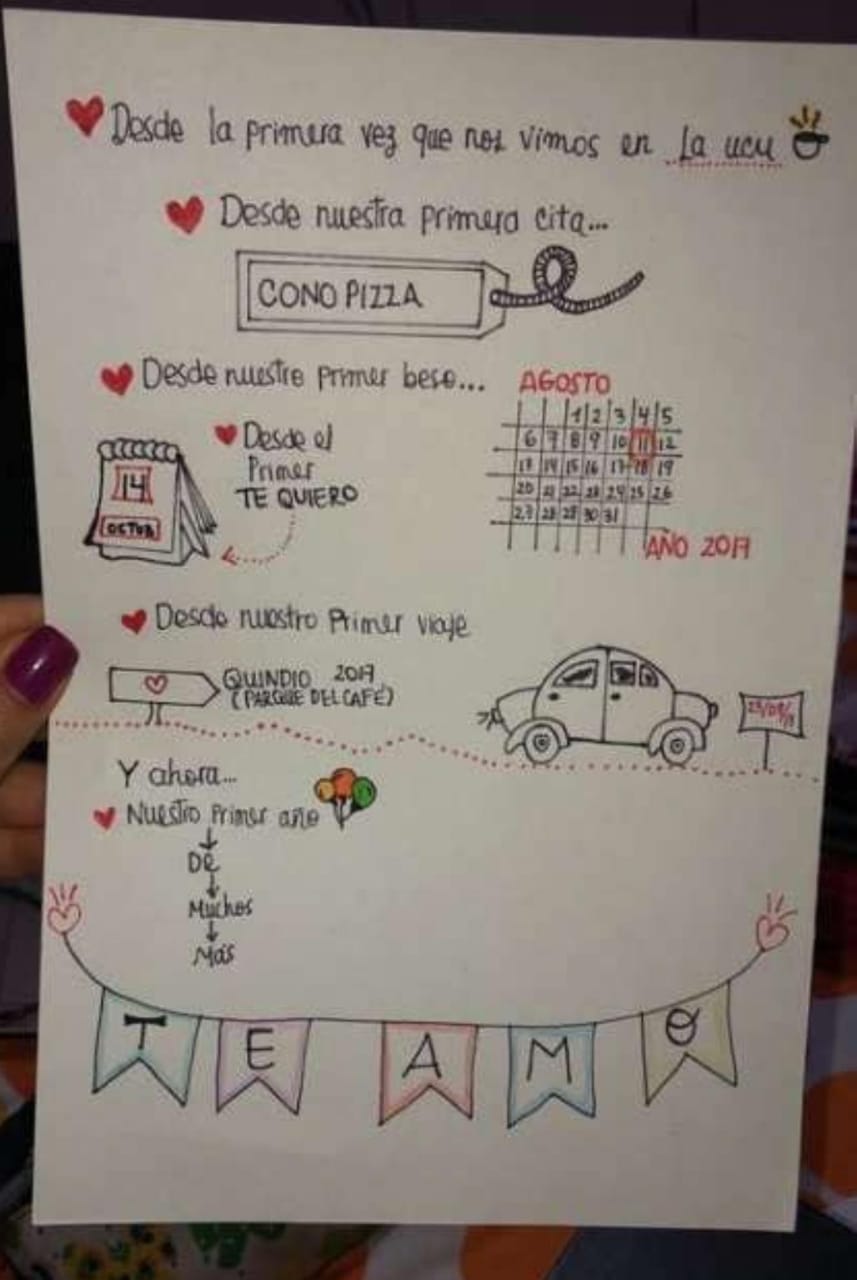 Desde la primera vez que nos vimos en la ucu
Desde nuestra primera cita...
CONO PIZZA
Desde nuestro primer beso...
AGOSTO
1 2 3 4 5
6 7 8 9 10 11 12
13 14 15 16 17 18 19
20 21 22 23 24 25 26
27 28 29 30 31
AÑO 2017
Desde el
Primer
TE QUIERO
14
OCTUB
Desde nuestro Primer viaje
QUINDIO 2017
(PARQUE DEL CAFÉ)
Y ahora...
Nuestro Primer año
De
Muchos
Más
TE AMO